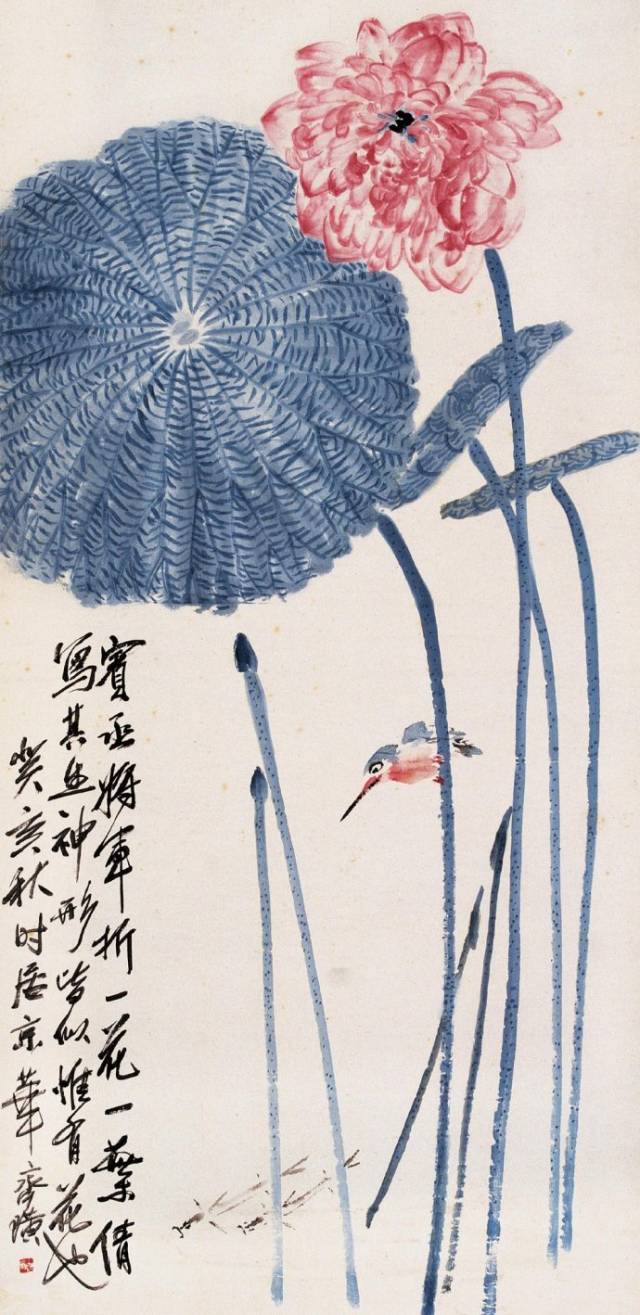 寶丞將軍折一花一葉倩
寫其照神形皆似惟有花也
癸亥秋时居京華齊璜